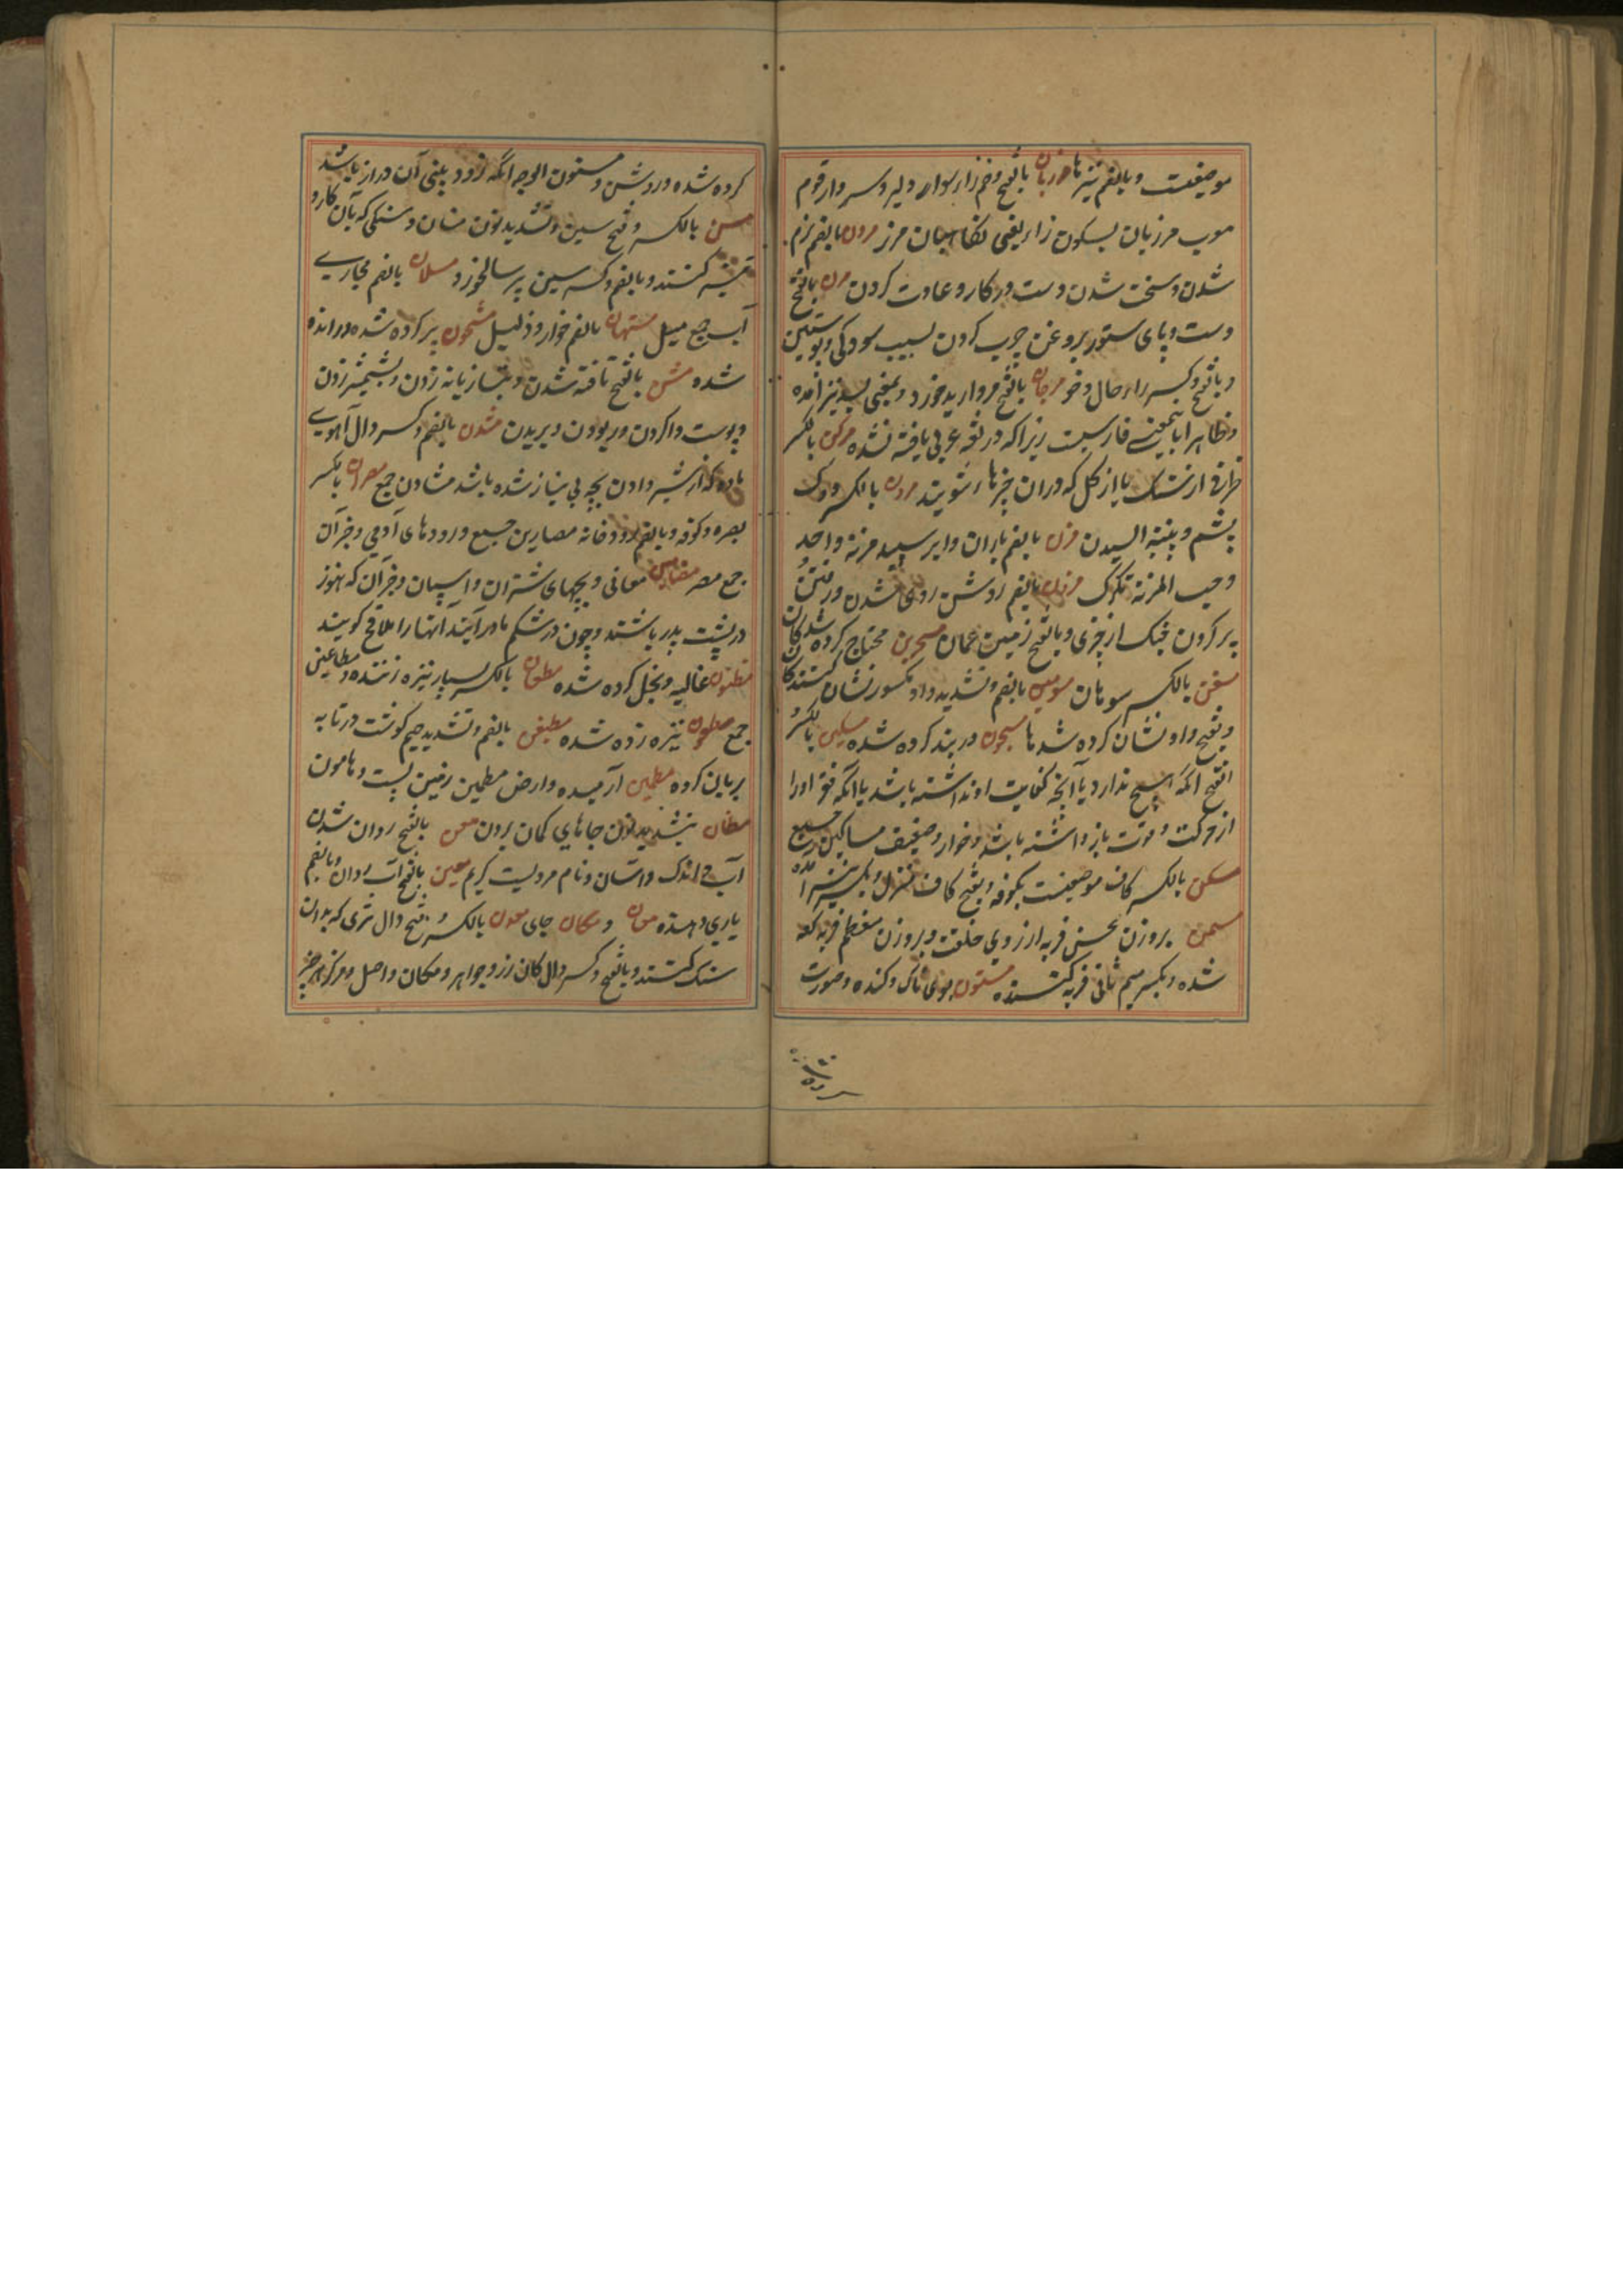 موضعیست و بالضم نیزها مرزبان بالفتح و ضم زا سوار دلیر و سردار قوم
معرب مرزبان بسکون زا یعنی نگاهبان مرز مرون بالضم نرم
شدن و سخت شدن دست در کار و عادت کردن مرن بالفتح
دست و پای ستور بروغن چرب کردن بسبب سودگی و پوستین
و بالفتح و کسر راء حال و خو مرجان بالفتح مروارید خورد و بمعنی بسد نیز آمده
و ظاهرا باینمعنی فارسیست زیرا که در لغة عربی یافته نشده مرکن بالکسر
ظرفی از سنگ یا از گل که دران چیزها شویند مردن بالکسر دوک
پشم و پنبه السیدن مزن بالضم باران و ابر سپید مزنة واحد
و حب المزنة تگرگ مزون بالضم روشن روی شدن و رفتن
پر کردن مشک از چیزی و بالفتح زمین عمان محتاج کرده شدگان
مسفن بالکسر سوهان مسومین بالضم و تشدید واو مکسور نشان کنندگان
و بفتح واو نشان کرده شدها مسجون در بند کرده شده مسکین بالکسر
الفتح آنکه هیچ ندارد یا آنچه کفایت او نداشته باشد یا آنکه فقر او را
از حرکت و قوت باز داشته باشد و خوار و ضعیف مساکین جمع
مسکن بالکسر کاف موضعیست بکوفه و بفتح کاف منزل و بکسر نیز آمده
مسمن بروزن محسن فربه از روی خلقت و بروزن معظم فربه
شده و بکسر میم ثانی فربه کننده مسنون بوی ناک و گنده و صورت
کرده شده و روشن و مسنون الوجه آنکه رو و بینی آن دراز باشد
مسن بالکسر و فتح سین و تشدید نون فسان و سنگی که بآن کارد
تیز کنند و بالضم و کسر سین پیر سالخورد مسلان بالضم مجاری
آب جمع مسیل مستهان بالضم خوار و ذلیل مشحون پر کرده شده و رانده
شده مشن بالفتح تافته شدن و بتازیانه زدن و بشمشیر زدن
و پوست وا کردن و ربودن و بریدن مشدن بالضم و کسر دال آهوی
ماده که از شیر دادن بچه بی نیاز شده باشد مشادن جمع مصران بالکسر
بصره و کوفه و بالضم رودخانه مصارین جمع و رودهای آدمی و جز آن
جمع مصر مضامین معانی و بچهای شتران و اسپان و جز آن که هنوز
در پشت پدر باشند و چون در شکم مادر آیند آنها را ملاقح گویند
غالیه و بخل کرده شده مطعان بالکسر بسیار نیزه زننده و مطاعین
جمع مطعون نیزه زده شده مطجن بالضم و تشدید جیم گوشت در تابه
بریان کرده مطمئن آرمیده و ارض مطمئن زمین پست و هامون
مظان بتشدید نون جاهای گمان بردن معن بالفتح روان شدن
آب و اندک و آسان و نام مردیست کریم معین بالفتح آب روان و بالضم
یاری دهنده معان و مکان جای معدن بالکسر و فتح دال تبری که بدان
سنگ کنند و بالفتح و کسر دال کان زر و جواهر و مکان و اصل و مرکز هر چیز